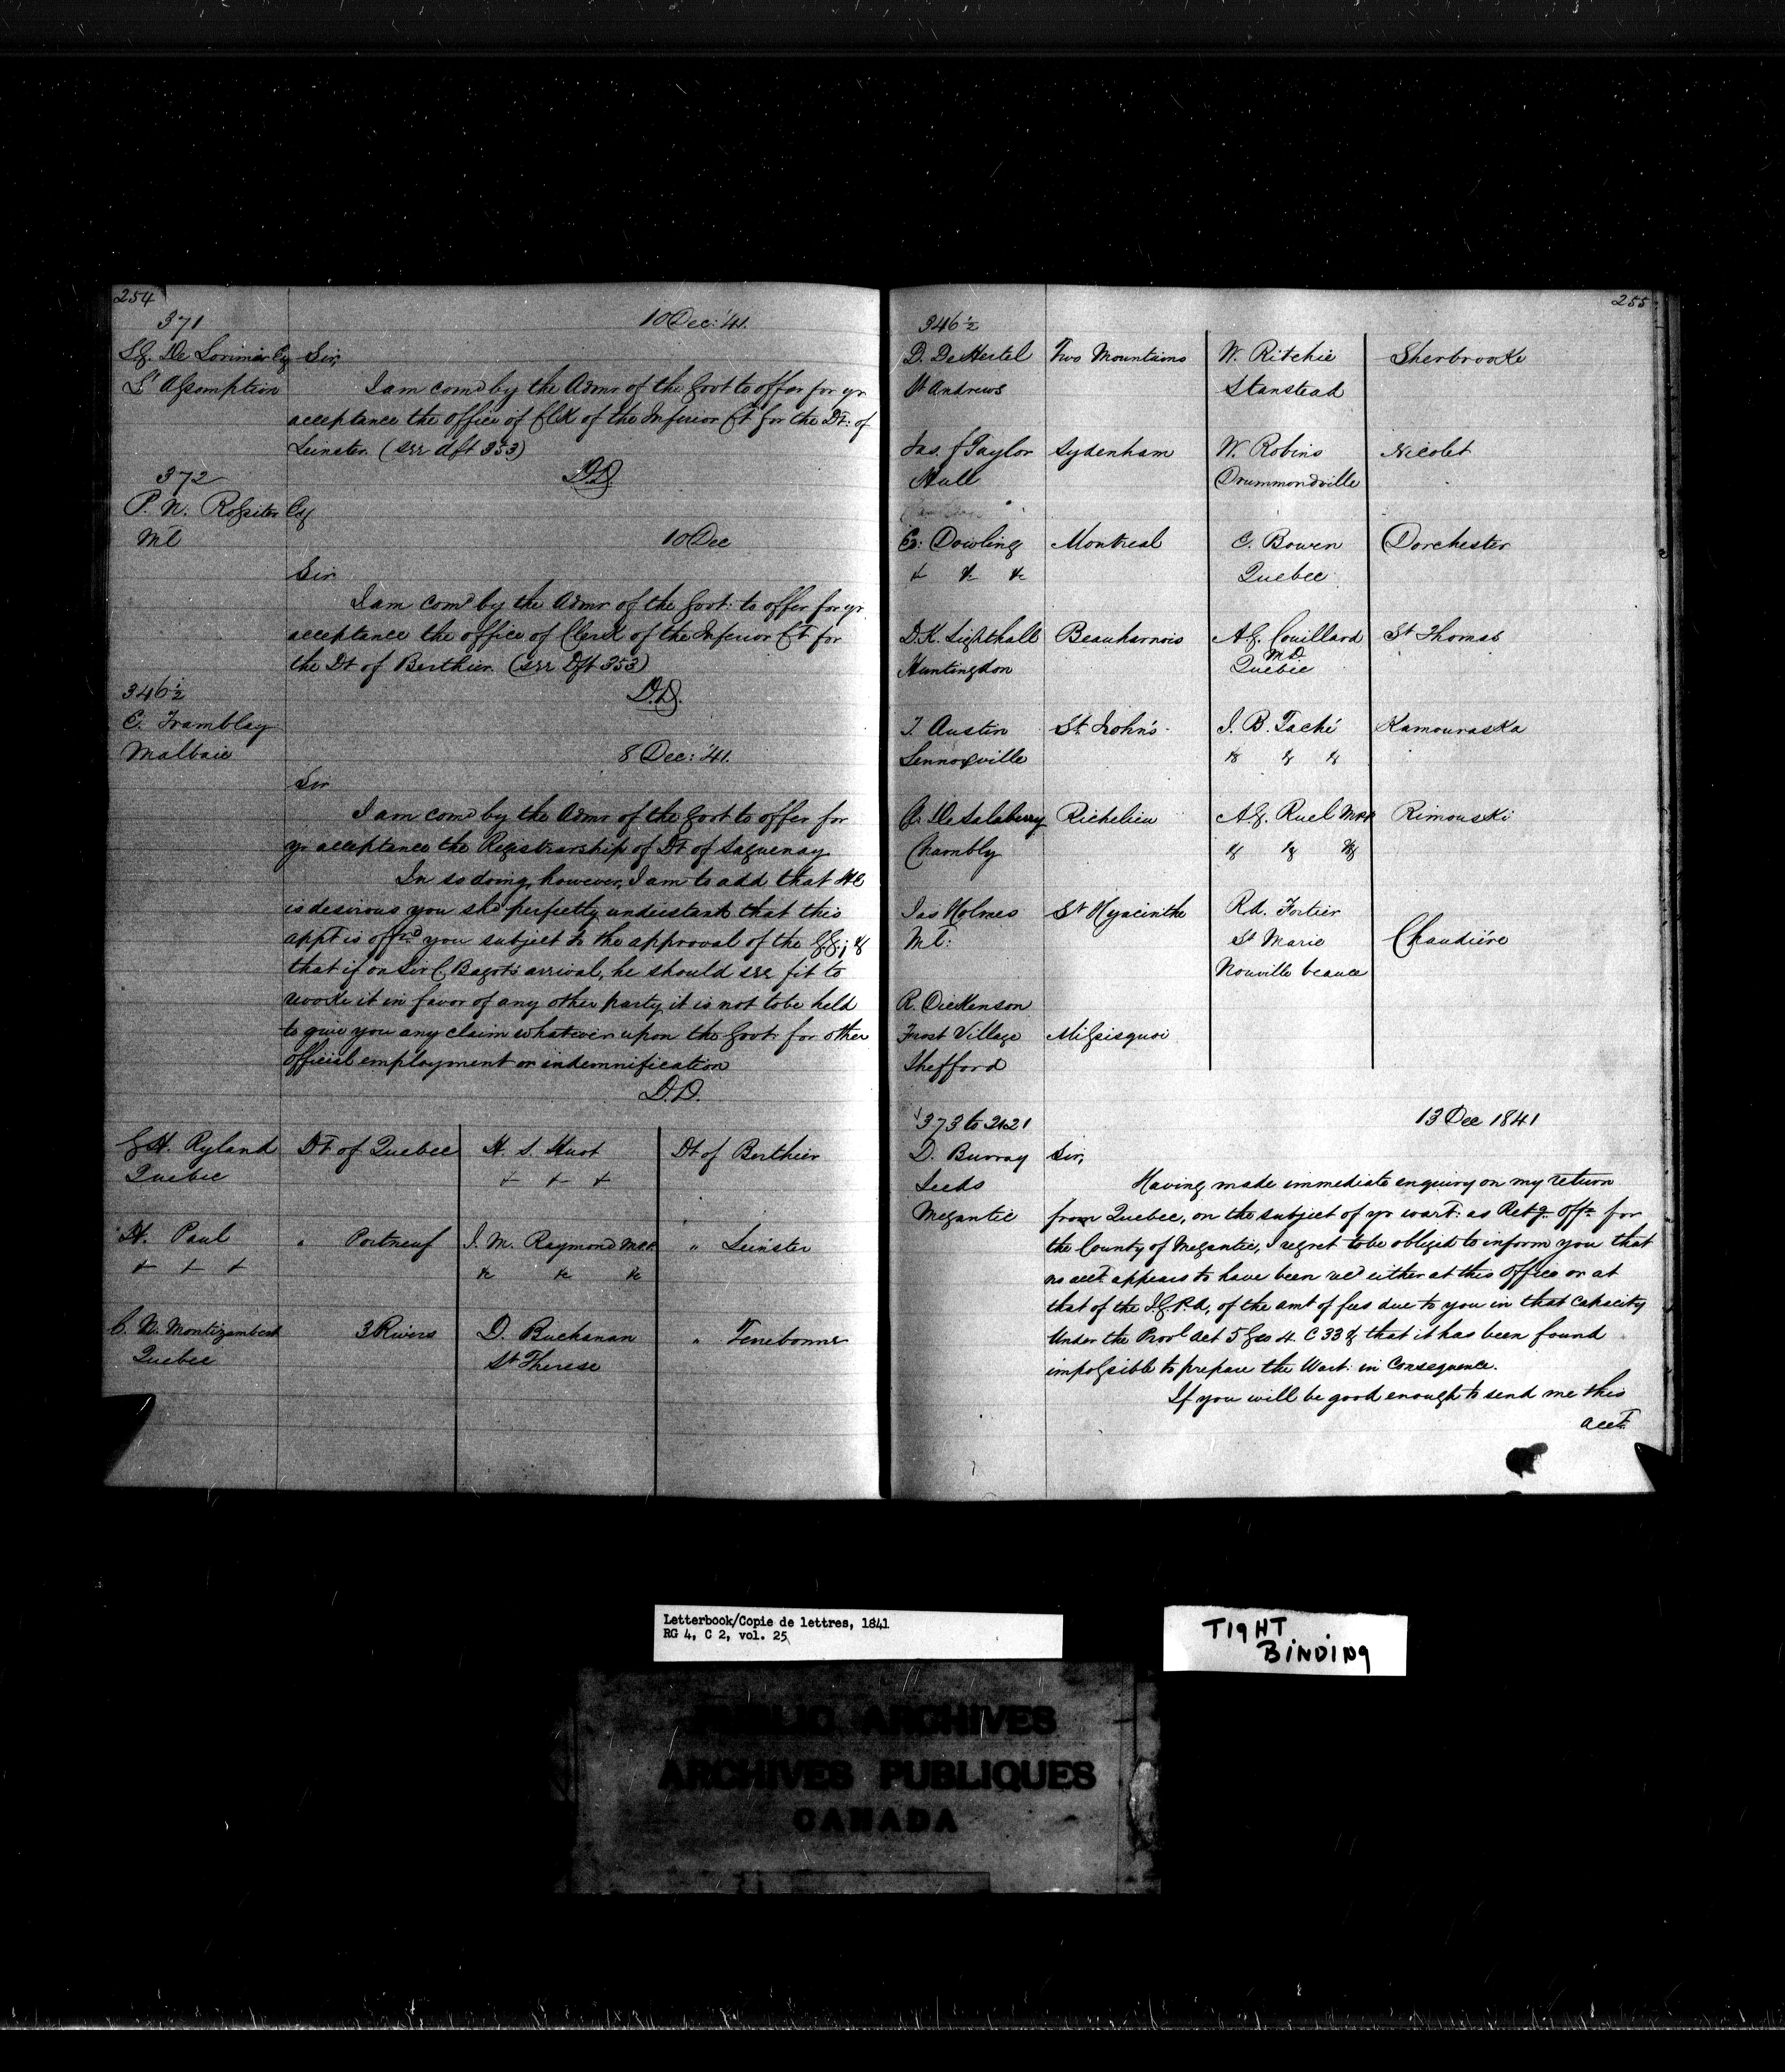 254
371
10 Dec: '41.
L.G. De Lorimier Esq Sir,
L'Assomption I am comd by the Admr of the Govt to offer for yr
acceptance the office of Clk of the Inferior Ct for the Dt: of
Leinster (see dft 353)
D.D.
372
P. N. Rossiter Esq
Ml
10 Dec
Sir
I am comd by the Admr of the Govt: to offer for yr
acceptance the office of Clerk of the Inferior Ct for
the Dt of Berthier (see Dft 353)
D.D.
346½
C. Tremblay
Malbaie
8 Dec: '41.
Sir
I am comd by the Admr of the Govt to offer for
yr acceptance the Registrarship of Dt of Saguenay
In so doing, however, I am to add that He
is desirous you shd perfectly understand that this
appt is offrd you subject to the approval of the G.G.; &
that if on Sir C Bagot's arrival, he should see fit to
revoke it in favor of any other party it is not to be held
to give you any claim whatever upon the Govt for other
official employment or indemnification
D.D.
G H. Ryland Dt of Quebec H. S. Huot Dt of Berthier
Quebec + + +
H. Paul " Portneuf J. M. Raymond M.P.P. " Leinster
+ + + &c &c &c
C. N. Montizambert 3 Rivers D. Buchanan " Terrebonne
Quebec St Therese
255
346½
D. De Hertel Two Mountains W. Ritchie Sherbrooke
St Andrews Stanstead
Jas. F Taylor Sydenham W. Robins Nicolet
Hull Drummondville
E: Dowling Montreal E. Bowen Dorchester
+ &c &c Quebec
D.K. Lighthall Beauharnois A.G. Couillard St Thomas
M.D.
Huntingdon Quebec
T. Austin St. John's J. B. Taché Kamouraska
Lennoxville & & &
De Salaberry Richelieu A.G. Ruel Rimouski
Chambly & & &
Jas Holmes St Hyacinthe Rd. Fortier
Ml: St Marie Chaudière
Nouville beauce
R. Dickenson
Frost Village Missisquoi
Shefford
373 to 2421
13 Dec 1841
D. Burray Sir,
Leeds Having made immediate enquiry on my return
Megantic from Quebec, on the subject of yr wart: as Retg. Offr for
the County of Megantic, I regret to be obliged to inform you that
no acct. appears to have been recd either at this Office or at
that of the I.G.P.A, of the amt of fees due to you in that capacity
Under the Provl Act 5 Geo 4. C 33 & that it has been found
impossible to prepare the Wart: in Consequence.
If you will be good enough to send me this
acct
Letterbook/Copie de lettres, 1841
RG 4, C 2, vol. 25
TIGHT
BINDING
PUBLIC ARCHIVES
ARCHIVES PUBLIQUES
CANADA